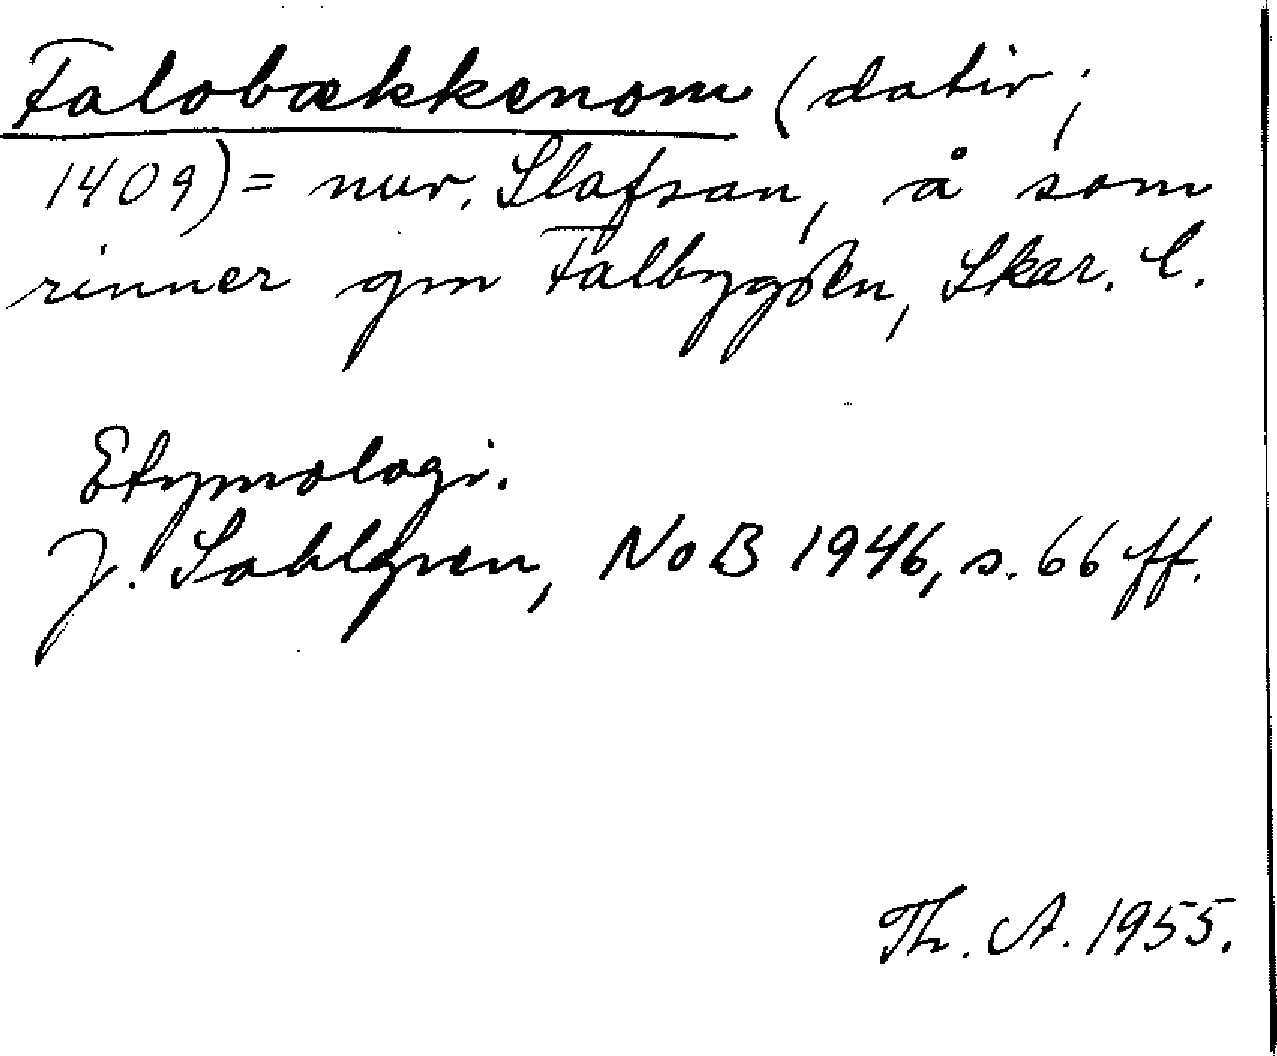 Falobækkenom (dativ;
1409) = nuv. Slafsan, å som
rinner gm Falbygden, Skar. l.
Etymologi.
J. Sahlgren, NoB 1946, s. 66 ff.
Th. A. 1955.